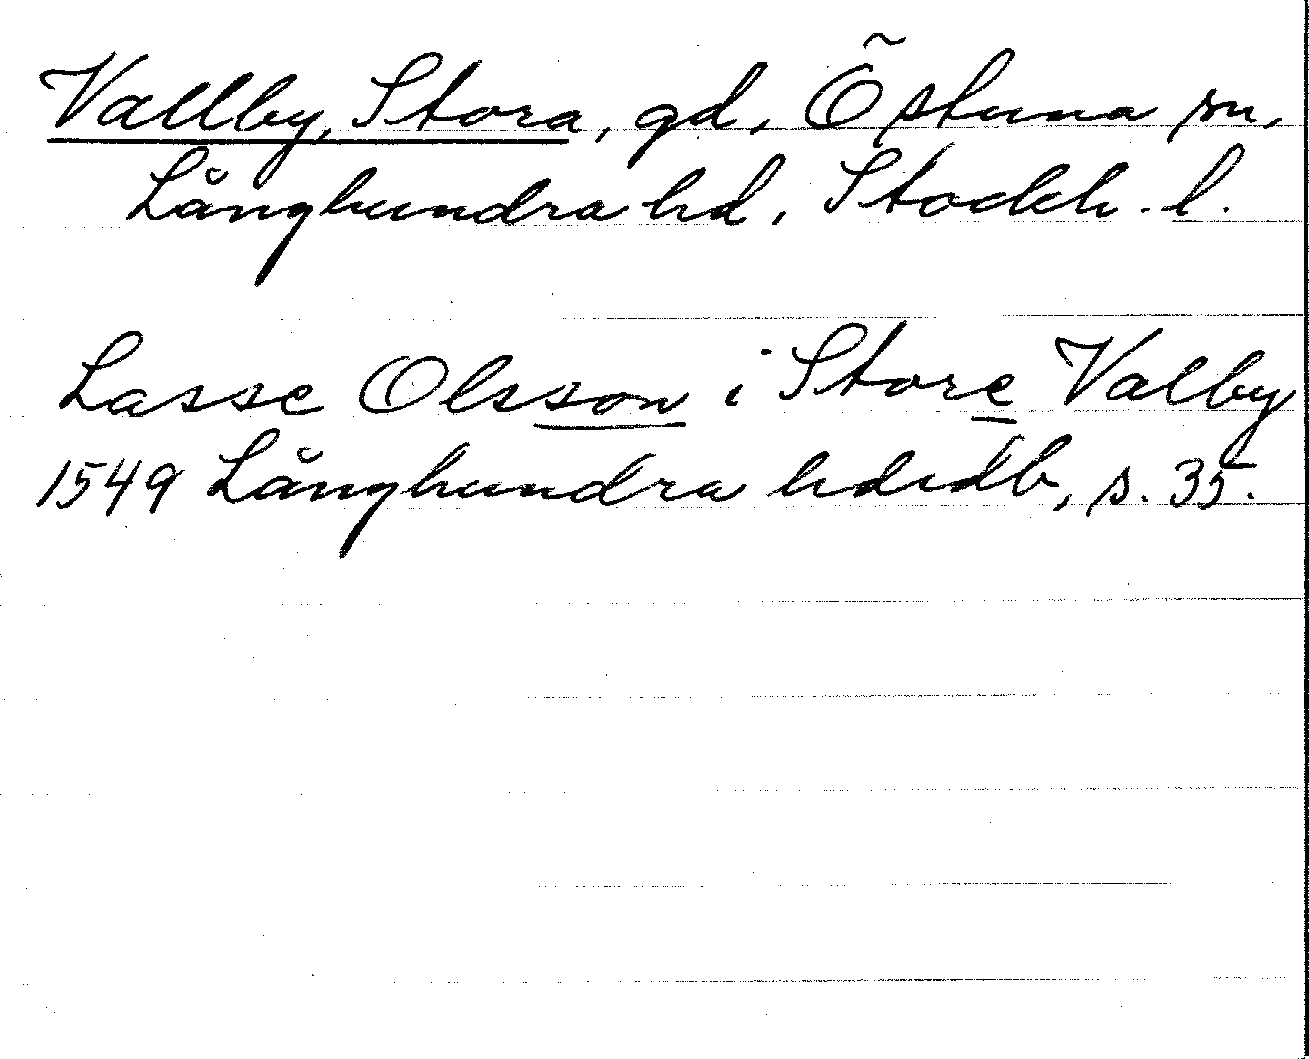 Vallby, Stora, gd, Östuna sn,
Långhundra hd, Stockh. l.
Lasse Olsson i Store Valby
1549 Långhundra hdsdb, s. 35.